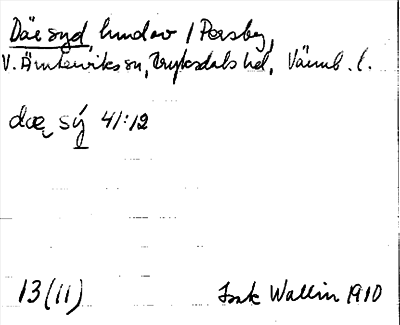 Där syd, hmd av 1 Persby,
V. Ämterviks sn, Fryksdals hd, Värml. l.
dæ̨ sý 41:12
13 (11) Isak Wallin 1910